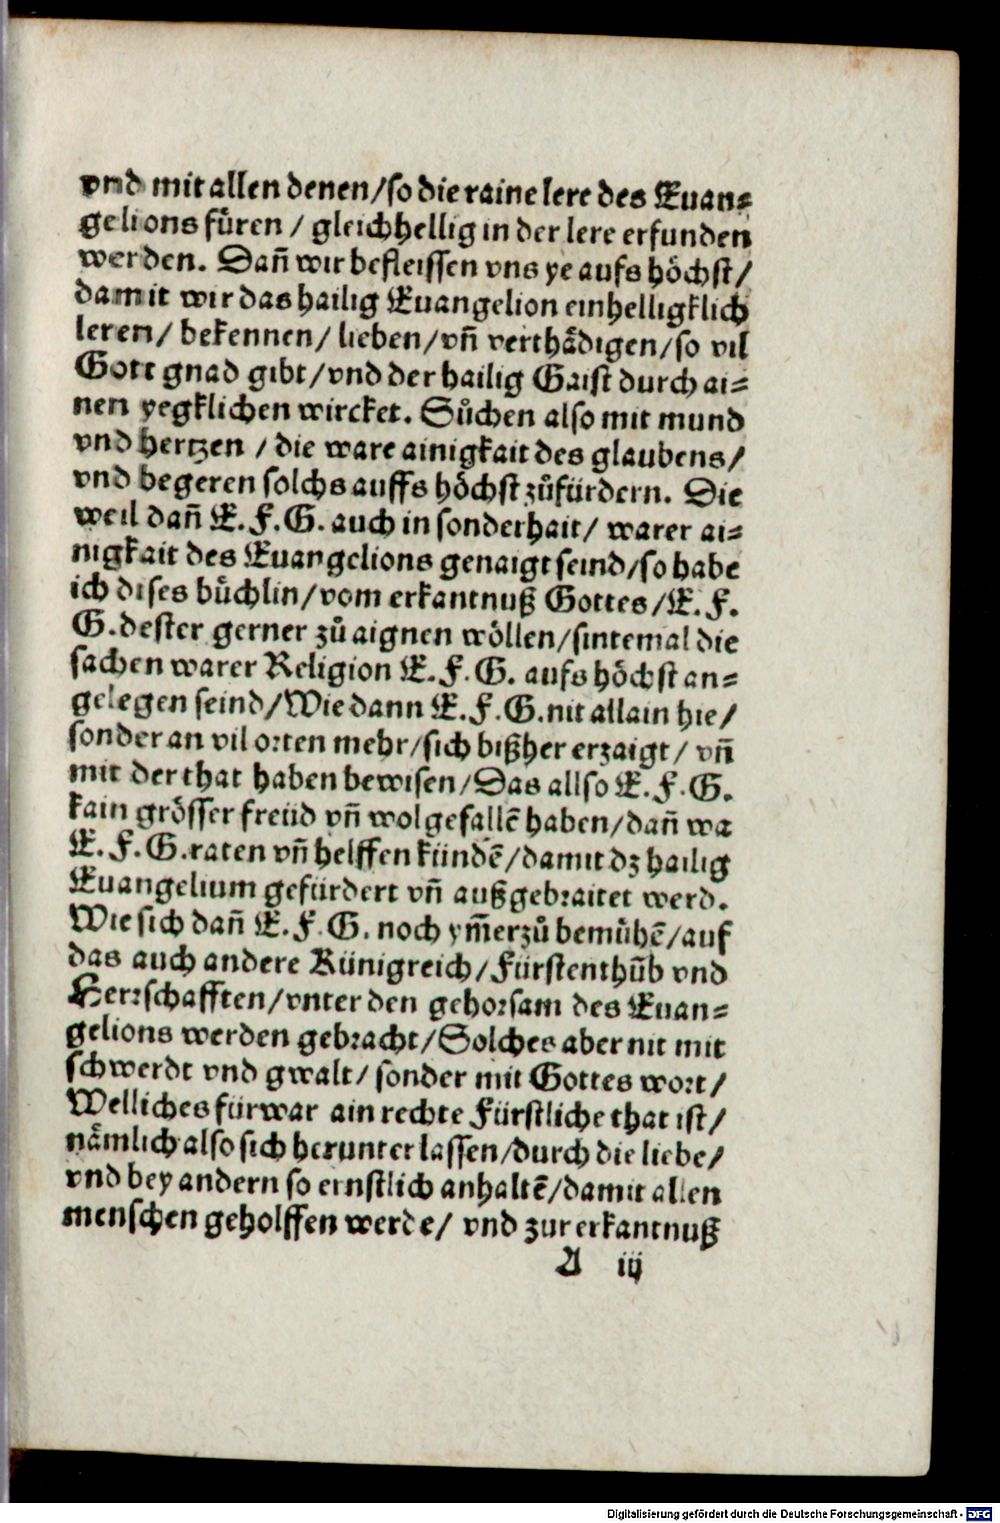 vnd mit allen denen/so die raine lere des Euan⸗
gelions fuͤren / gleichhellig in der lere erfunden
werden. Dañ wir befleissen vns ye aufs hoͤchst/
damit wir das hailig Euangelion einhelligklich
leren/ bekennen/ lieben/vñ verthaͤdigen/so vil
Gott gnad gibt/vnd der hailig Gaist durch ai⸗
nen yegklichen wircket. Suͦchen also mit mund
vnd hertzen /die ware ainigkait des glaubens/
vnd begeren solchs auffs hoͤchst zuͦfürdern. Die
weil dañ E. F. G. auch in sonderhait/ warer ai⸗
nigkait des Euangelions genaigt seind/so habe
ich dises buͤchlin/vom erkantnuß Gottes/E. F.
G. dester gerner zuͦ aignen woͤllen/sintemal die
sachen warer Religion E. F. G. aufs hoͤchst an⸗
gelegen seind/Wie dann E. F. G. nit allain hie/
sonder an vil orten mehr/sich bißher erzaigt/ vñ
mit der that haben bewisen/Das allso E. F. G.
kain groͤsser freüd vñ wolgefallẽ haben/dañ wa
E. F. G. raten vñ helffen kündẽ/damit dz hailig
Euangelium gefürdert vñ außgebraitet werd.
Wie sich dañ E. F. G. noch ym̃erzuͦ bemuͤhẽ/auf
das auch andere Künigreich/Fürstenthũb vnd
Herrschafften/vnter den gehorsam des Euan⸗
gelions werden gebracht/Solches aber nit mit
schwerdt vnd gwalt/ sonder mit Gottes wort/
Welliches fürwar ain rechte Fürstliche that ist/
naͤmlich also sich herunter lassen/durch die liebe/
vnd bey andern so ernstlich anhaltẽ/damit allen
menschen geholffen werde/ vnd zur erkantnuß
A iij
Digitalisierung gefördert durch die Deutsche Forschungsgemeinschaft - DFG